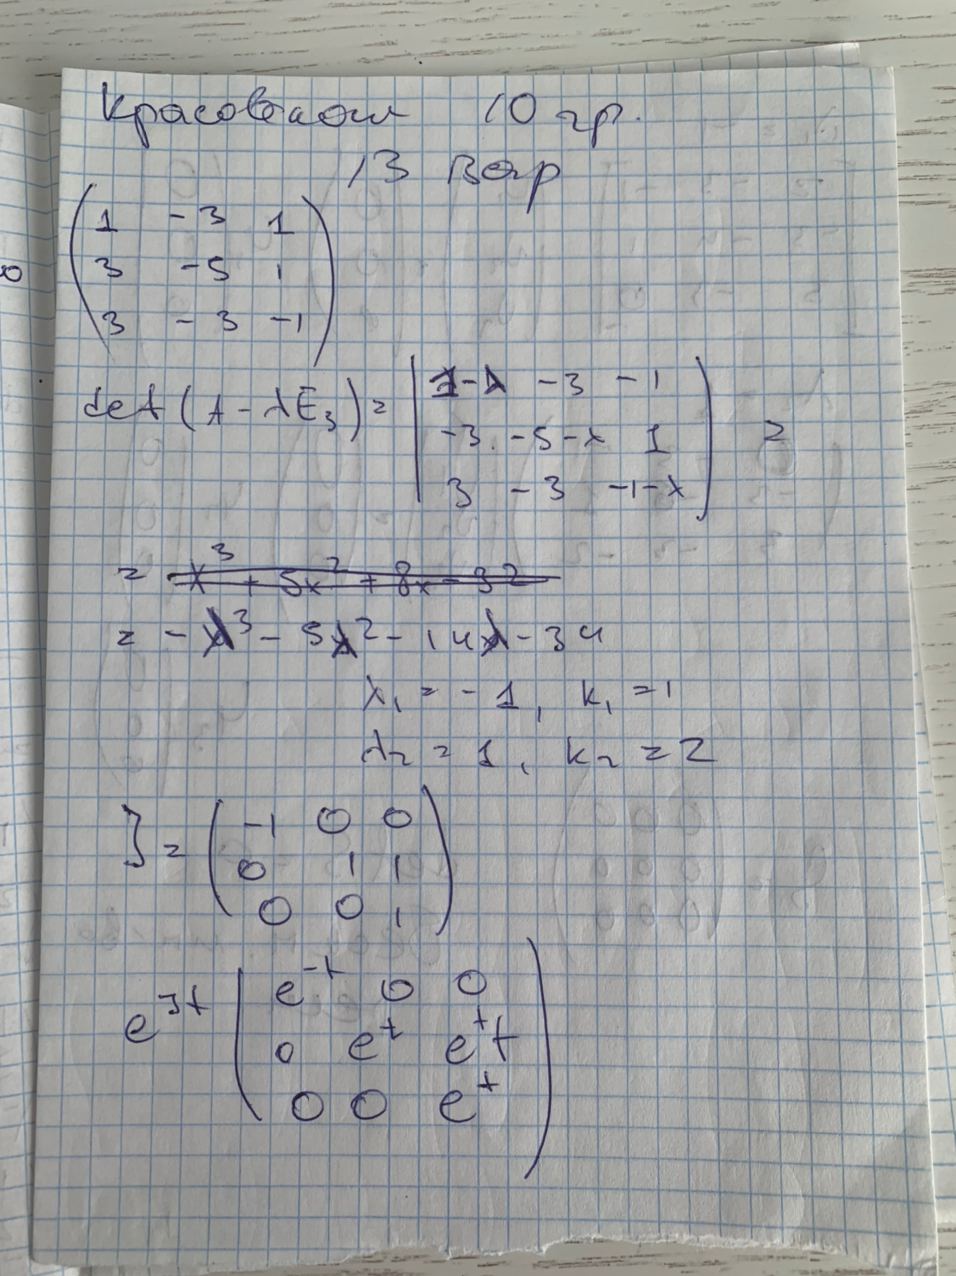 10 гр.
13 вар
1 -3 1
3 -5 1
3 -3 -1
det(A - λE₃) = | 1-λ -3 -1
-3 -5-λ 1 | =
3 -3 -1-λ
= λ³ + 5λ² + 8λ - 32
= -λ³ - 5λ² - 14λ - 34
λ₁ = -1, k₁ = 1
λ₂ = 1, k₂ = 2
J = ( -1 0 0
0 1 1
0 0 1 )
e^{Jt} ( e^{-t} 0 0
0 e^t e^t t
0 0 e^t )